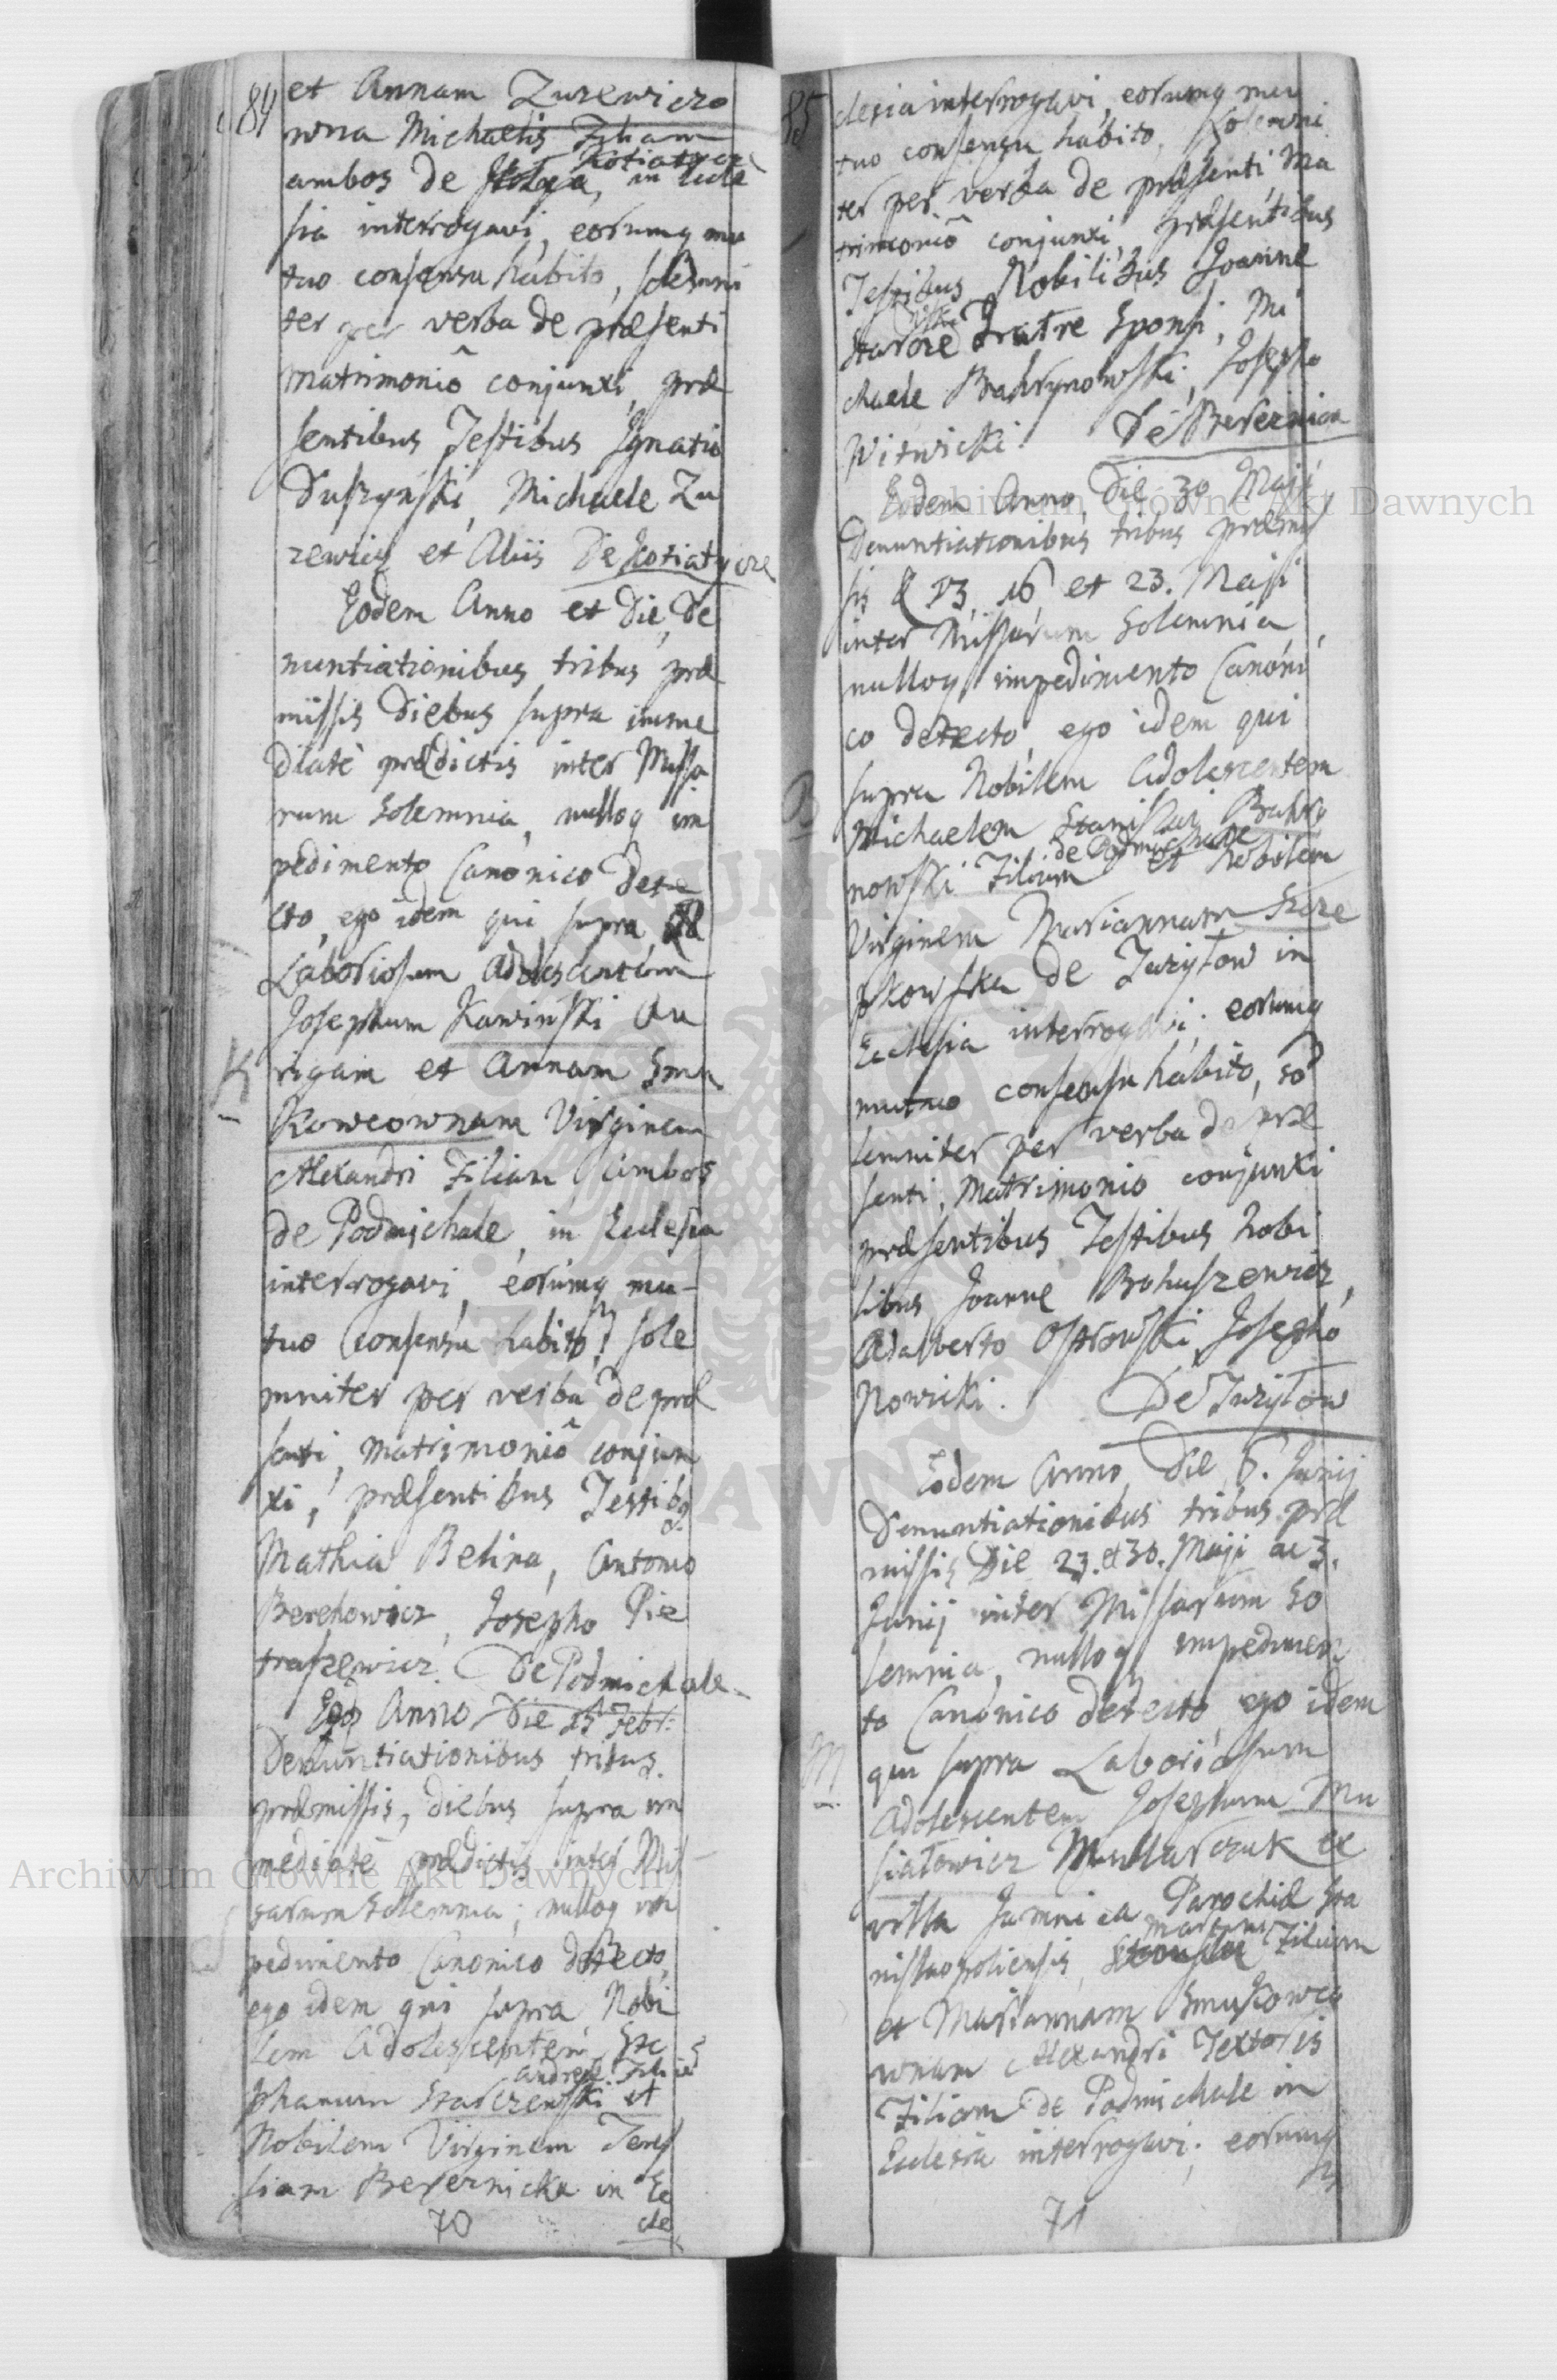 84
et Annam Zurewiczo
wna Michaelis Filiam
Kotiatycze
ambos de in Eccle
sia interrogavi, eorumq mu
tuo consensu habito, solemni
ter per verba de præsenti
Matrimoniô conjunxi, præ
sentibus Testibus Ignatio
Duszynski, Michaele Zu
rewicz et Aliis De Kotiatycze
Eodem Anno et Die, De
nuntiationibus tribus præ
missis Diebus supra imme
diatè prædictis inter Missa
rum Solemnia, nulloq im
pedimento Canonico dete
cto, ego idem qui supra
Laboriosum Adolescentem
Josephum Kawinski Au
K
rigam et Annam Smu
Kowcownam Virginem
Alexandri Filiam ambos
de Podmichale, in Ecclesia
interrogavi, eorumq mu-
tuo Consensu habito, sole
mniter per verba de præ
senti, Matrimoniô conjun
xi, præsentibus Testibq
Mathia Belina, Antonio
Berehowicz, Josepho Pie
traszewicz De Podmichale
Anno Die 25 Febr:
Denuntiationibus tribus
præmissis, diebus supra im
mediatè prædictis inter Mis-
sarum Solemnia, nulloq im
pedimento Canonico detecto,
ego idem qui supra Nobi
lem Adolescentem Ste
Andreæ Filiũ
phanum Starczewski et
Nobilem Virginem There
siam Bereznicka in Ec
70 cle
85
clesia interrogavi, eorumq mu
tuo consensu habito, Solemni
ter per verba de præsenti, Ma
trimoniô conjunxi, præsentibus
Testibus Nobilibus Joanne
Fratre Sponsi, Mi
chaele Brahrynowski, Josepho
Witwicki. De Bereznica
Eodem Anno, Die 30 Maji
Denuntiationibus tribus præmis
sis 13, 16, et 23. Maji
inter Missarum Solemnia,
nulloq impedimento Canoni
co detecto, ego idem qui
supra Nobilem Adolescentem
B
Michaelem Stanislai Brahry
de Podmichale
nowski Filium et Nobilem
Virginem Mariannam Szcze
pkowska de Zuryłow in
Ecclesia interrogavi, eorumq
mutuo consensu habito, so
lemniter per verba de præ
senti, Matrimonio conjunxi
præsentibus Testibus Nobi
libus Joanne Bohuszewicz,
Adalberto Ostrowski, Josepho
Nowicki. De Zuryłow
Eodem Anno, Die 6. Junij
Denuntiationibus tribus præ
missis Die 23. et 30. Maji ac 3.
Junij inter Missarum So
lemnia, nulloq impedimen
to Canonico detecto, ego idem
M
qui supra Laboriosum
Adolescentem Josephum Mu
siatowicz Mullarczuk ex
villa Jamnica Parochiæ Sta
Martini
nislaopoliensis, Filium
et Mariannam Smukowco
wnam Alexandri Textoris
Filiam de Podmichale in
Ecclesia interrogavi, eorumq
71
Archiwum Główne Akt Dawnych
Archiwum Główne Akt Dawnych